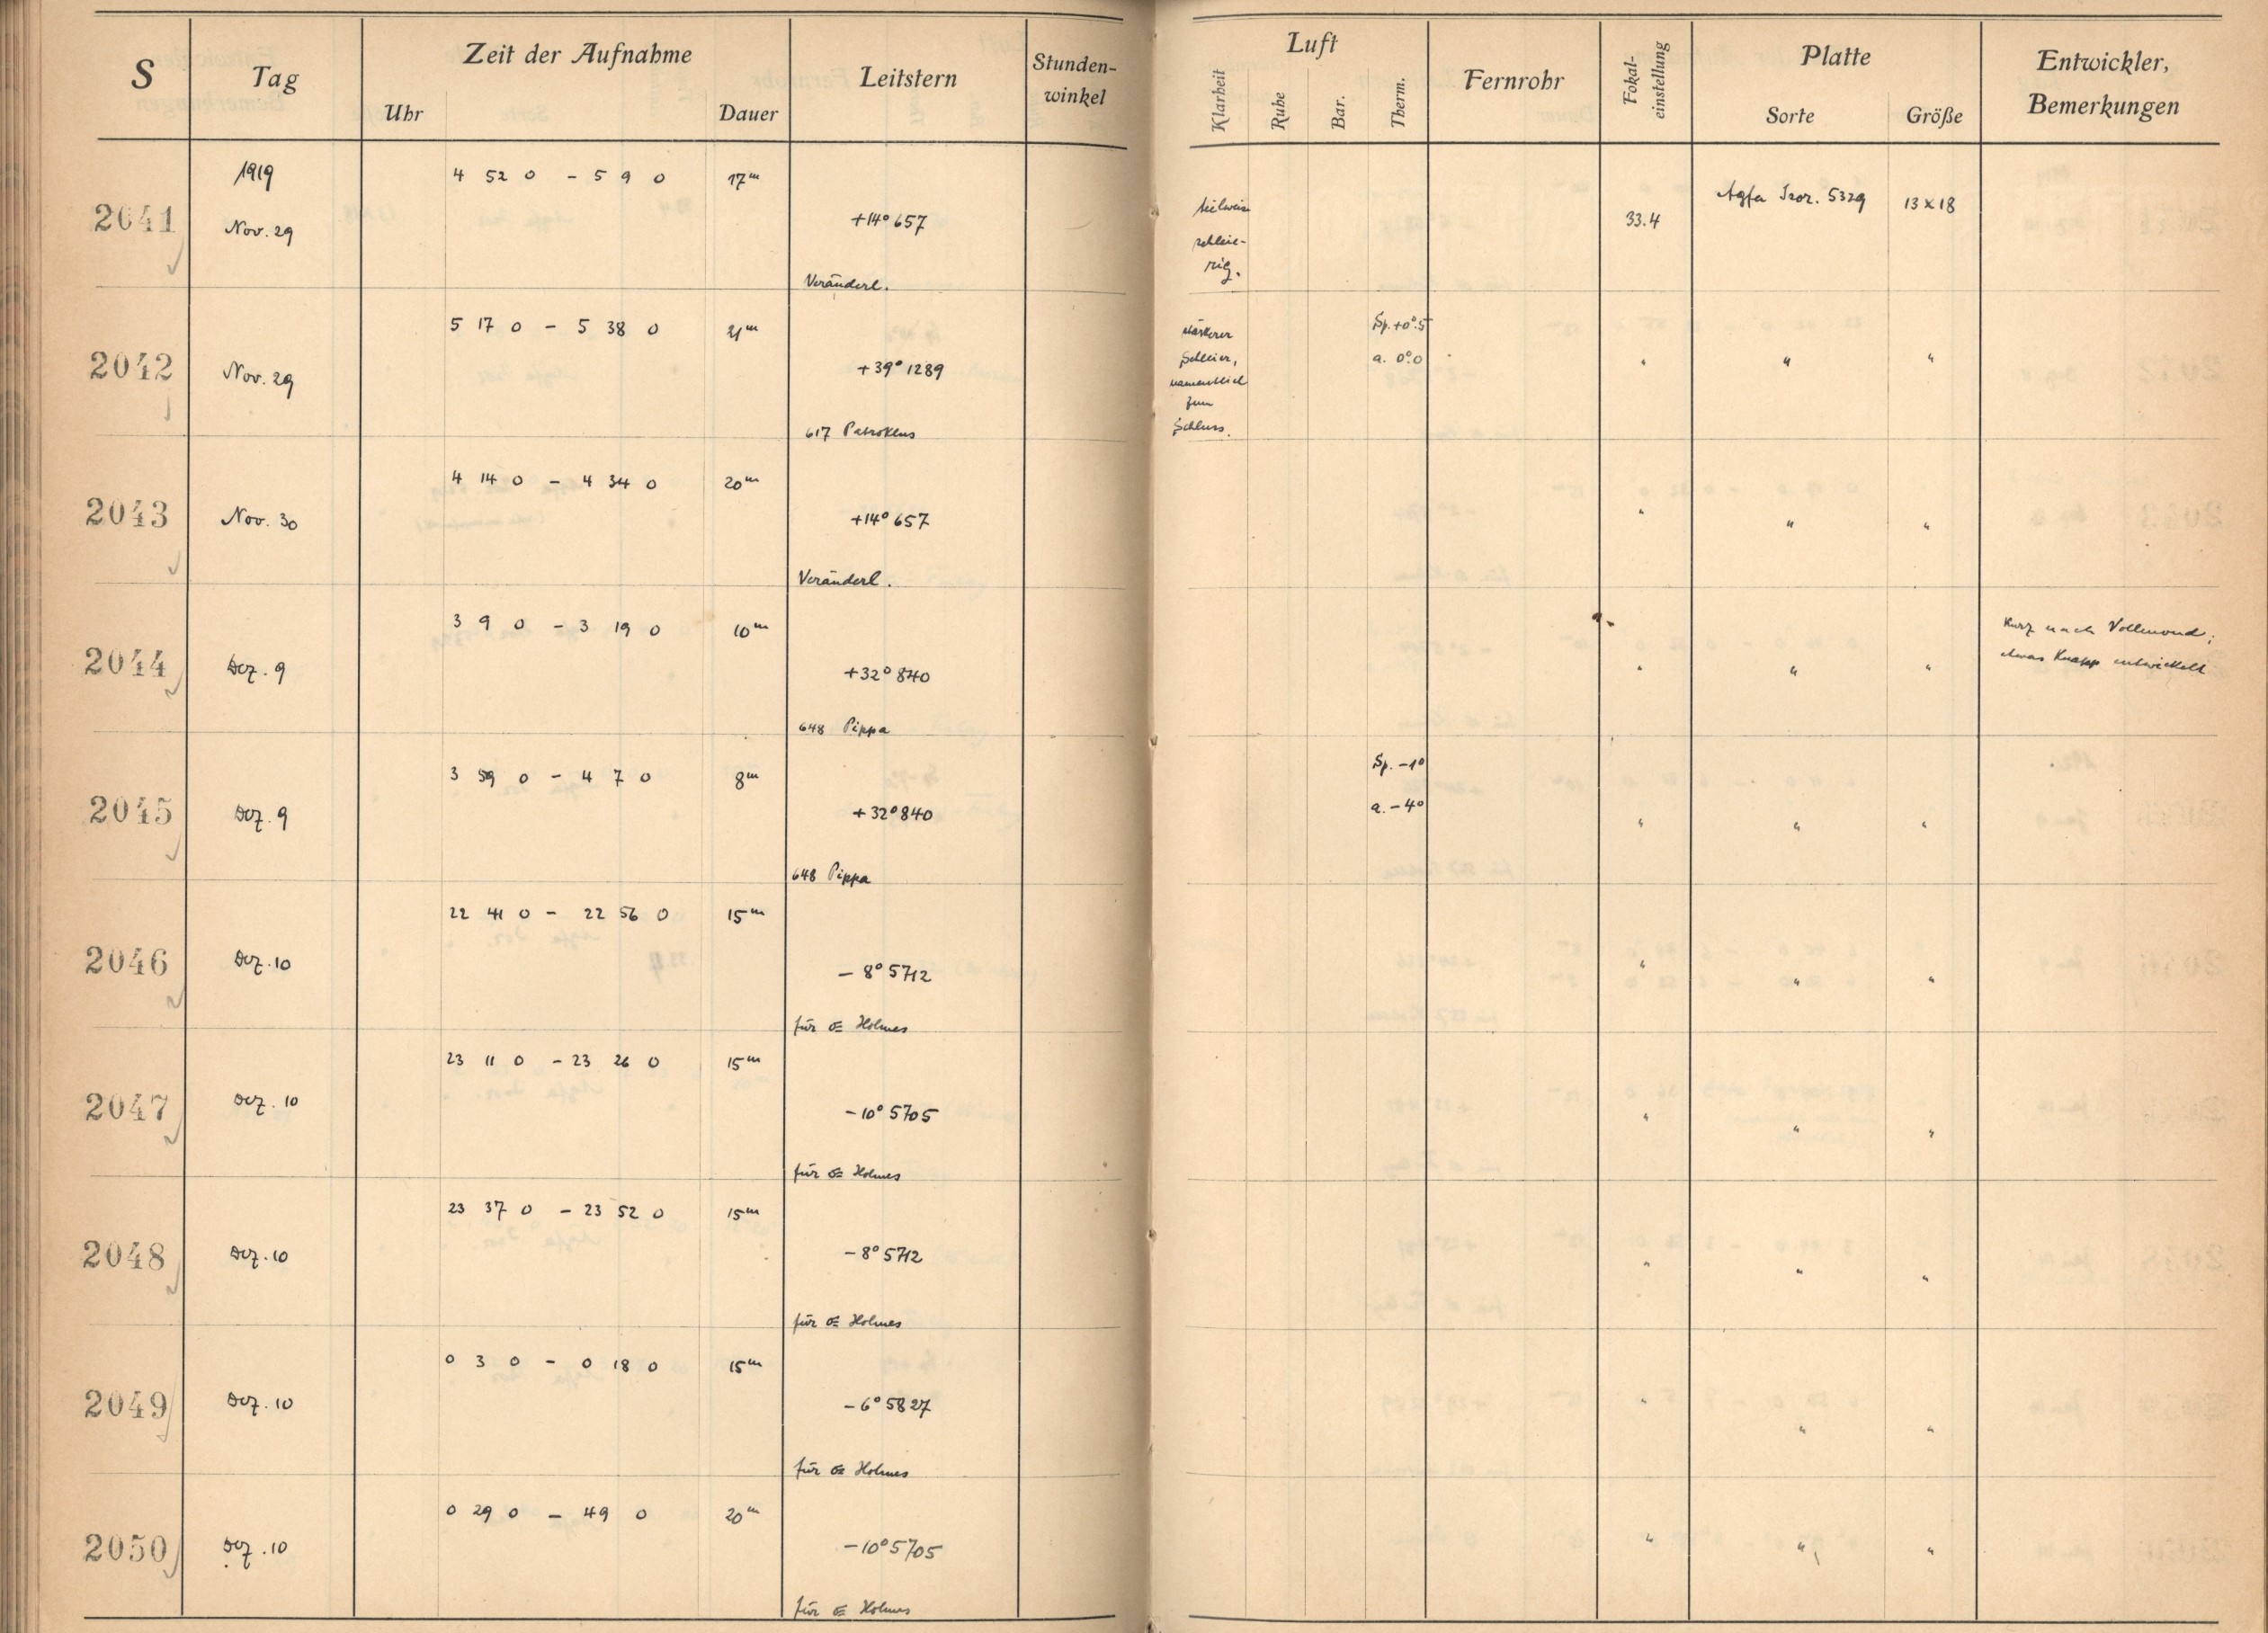 S Tag Zeit der Aufnahme Leitstern Stunden-winkel Luft Fernrohr Fokal-einstellung Platte Entwickler, Bemerkungen
Uhr Dauer Klarheit Ruhe Bar. Therm. Sorte Größe
1919 4 52 0 - 5 9 0 17m
2041 Nov. 29 +14° 657 teilweise schleie-rig. 33.4 Agfa Isor. 5329 13 x 18
Veränderl.
5 17 0 - 5 38 0 21m Sp. +0°.5
2042 Nov. 29 +39° 1289 stärkerer Schleier, namentlich zum Schluss. a. 0°.0 " " "
617 Patroklus
4 14 0 - 4 34 0 20m
2043 Nov. 30 +14° 657 " " "
Veränderl.
3 9 0 - 3 19 0 10m Kurz nach Vollmond;
2044 Dez. 9 +32° 840 " " " etwas knapp entwickelt
648 Pippa
3 59 0 - 4 7 0 8m Sp. -1°
2045 Dez. 9 +32° 840 a. -4° " " "
648 Pippa
22 41 0 - 22 56 0 15m
2046 Dez. 10 - 8° 5712 " " "
für ☄ Holmes
23 11 0 - 23 26 0 15m
2047 Dez. 10 -10° 5705 " " "
für ☄ Holmes
23 37 0 - 23 52 0 15m
2048 Dez. 10 -8° 5712 " " "
für ☄ Holmes
0 3 0 - 0 18 0 15m
2049 Dez. 10 -6° 5827 " " "
für ☄ Holmes
0 29 0 - 49 0 20m
2050 Dez. 10 -10° 5705 " " "
für ☄ Holmes